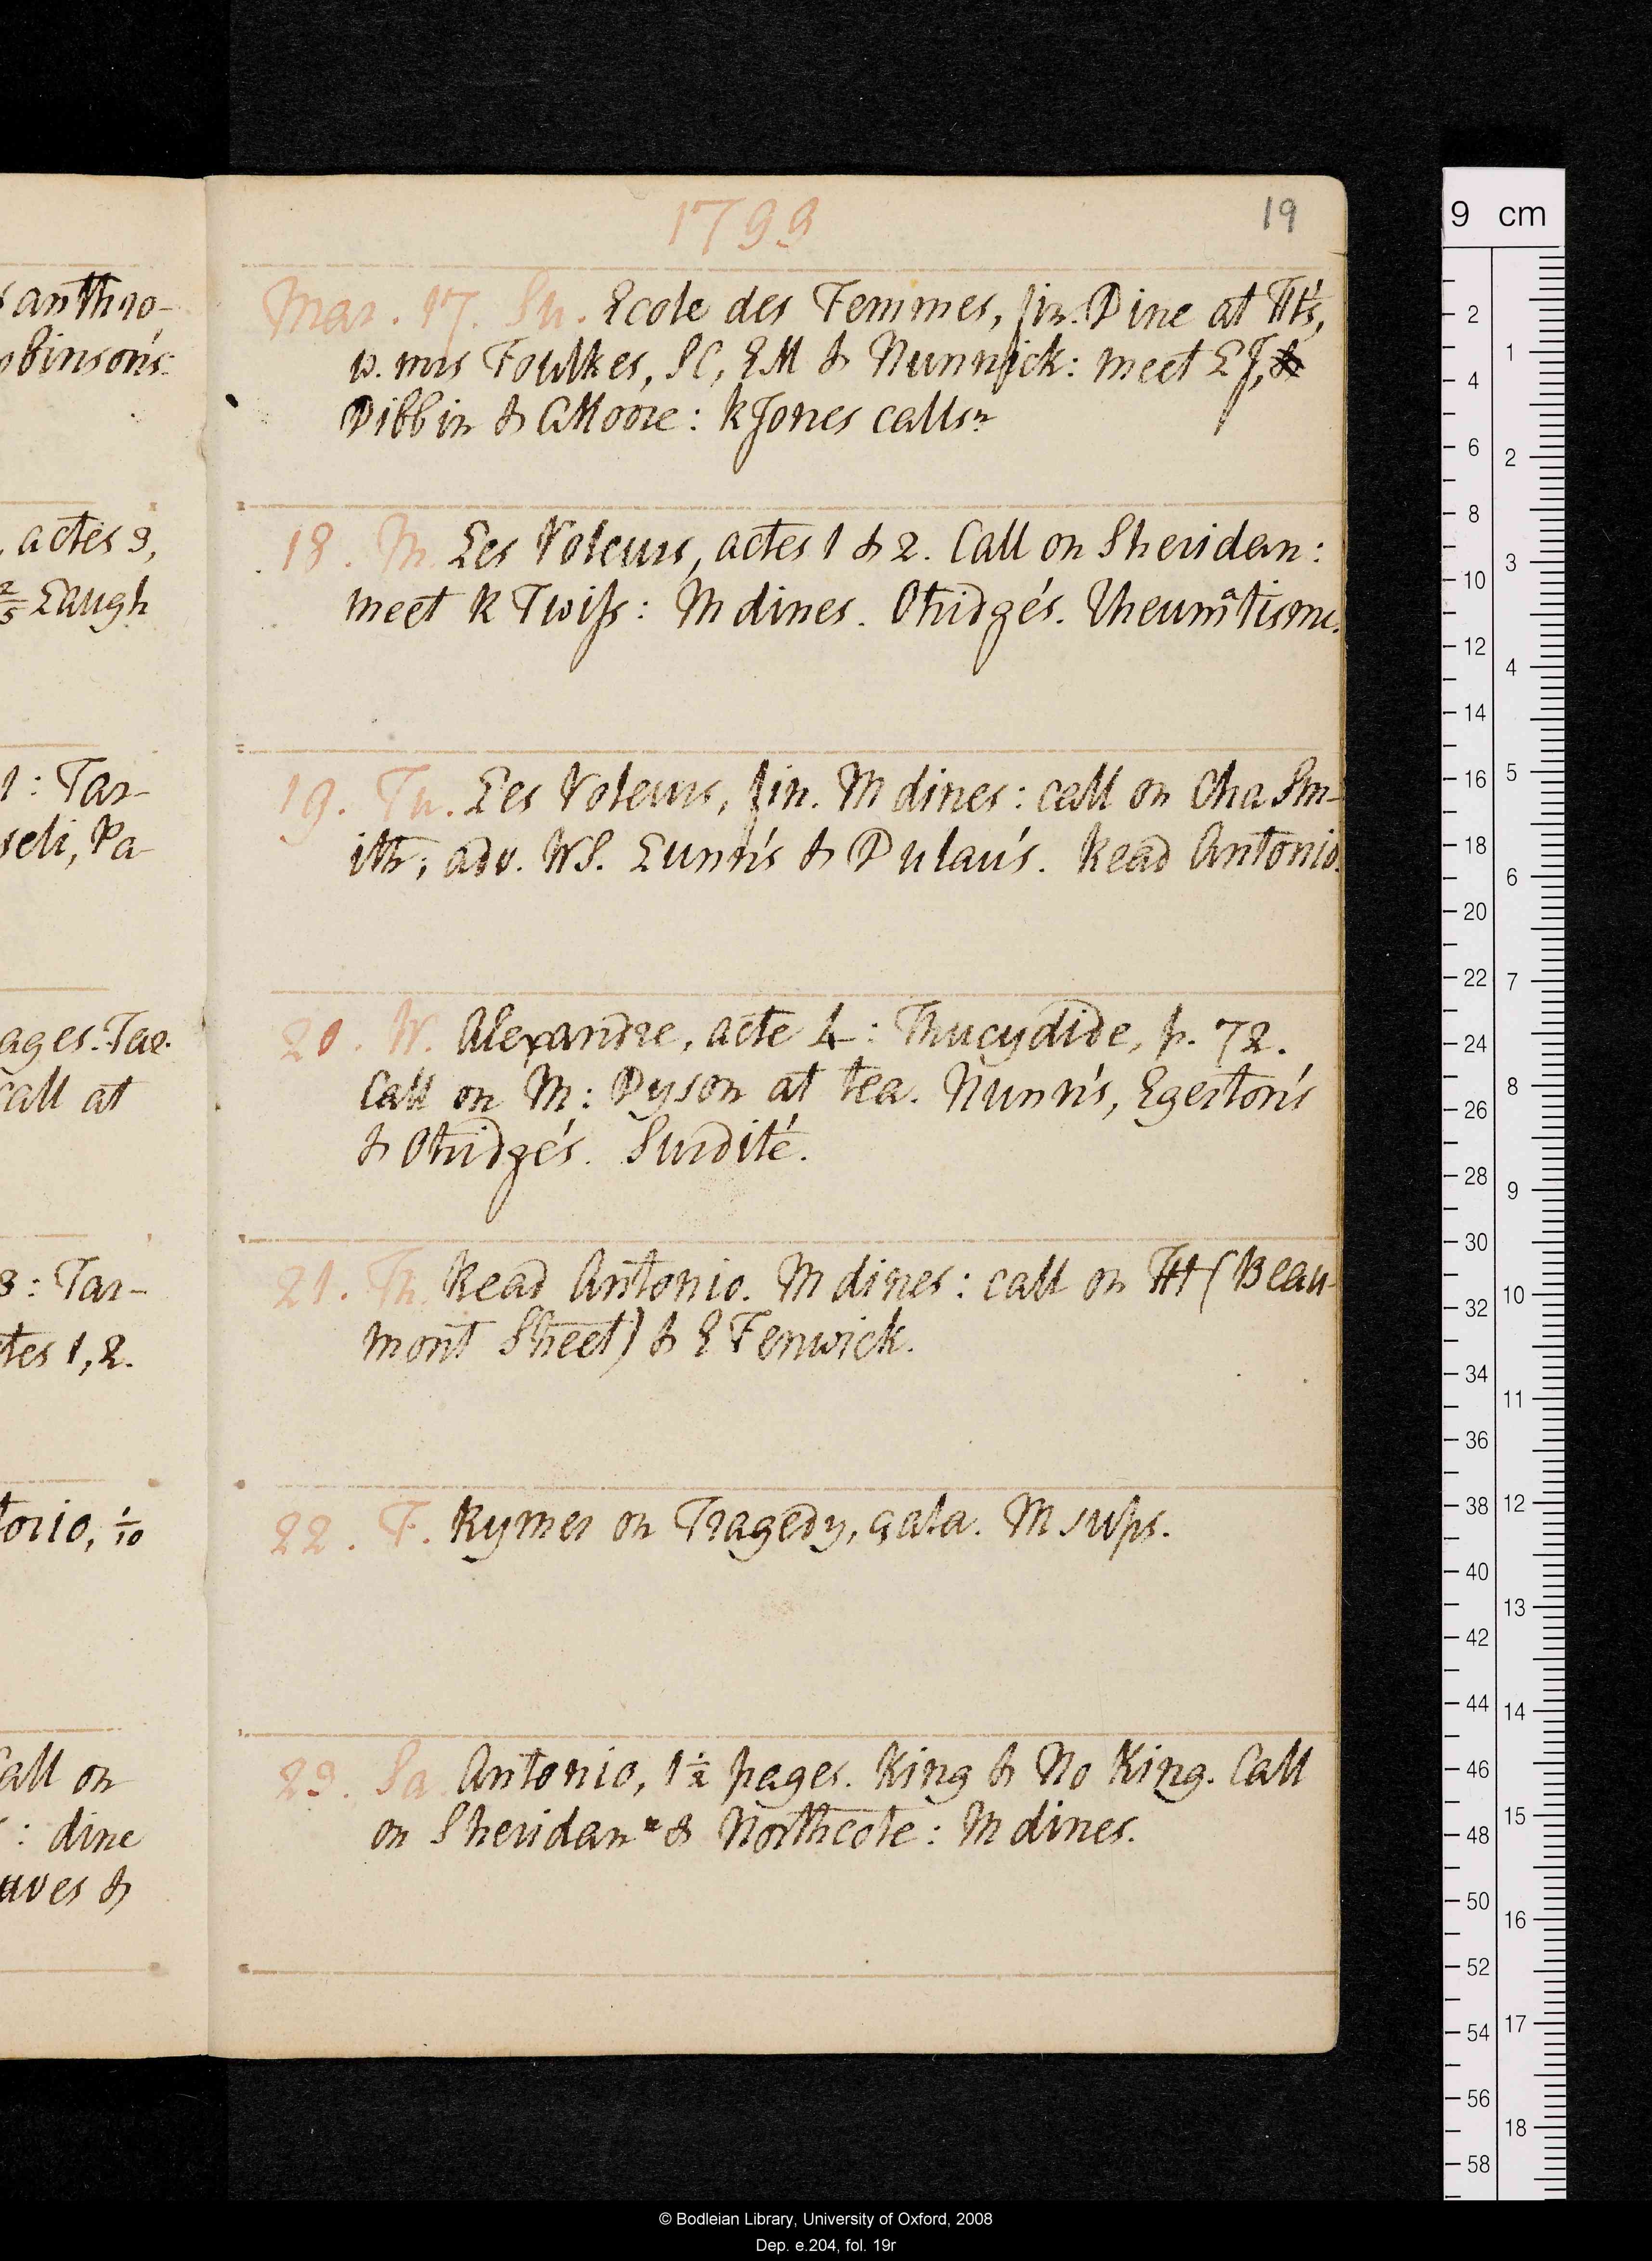 santhro-
obinson's:
, actes 3,
2/5 Laugh
1: Tar-
seli, Pa
ages. Tac.
call at
3: Tar-
ctes 1, 2.
torio, 1/10
Call on
: dine
aves &
1799
19
Mar. 17. Su. Ecole des Femmes, fin. Dine at THs,
w. mrs Foulkes, SC, EM & Nunnick: meet LJ, &
Dibbin & AMoore: R Jones calls n
18. M. Les Voleurs, actes 1 & 2. Call on Sheridan:
meet R Twiss: M dines. Otridge's. Rheumatisme.
19. Tu. Les Voleurs, fin. M dines: call on Cha Sm-
ith; adv. WS. Lunn's & Dulau's. Read Antonio.
20. W. Alexandre, acte 4: Thucydide, p. 72.
Call on M: Dyson at tea. Nunn's, Egerton's
& Otridge's. Surdité.
21. Th. Read Antonio. M dines: call on TH (Beau-
mont Street) & E Fenwick.
22. F. Rymer on Tragedy, çala. M sups.
23. Sa. Antonio, 1 1/2 pages. King & No King. Call
on Sheridan n & Northcote: M dines.
9 cm
2
4
6
8
10
12
14
16
18
20
22
24
26
28
30
32
34
36
38
40
42
44
46
48
50
52
54
56
58
1
2
3
4
5
6
7
8
9
10
11
12
13
14
15
16
17
18
© Bodleian Library, University of Oxford, 2008
Dep. e.204, fol. 19r